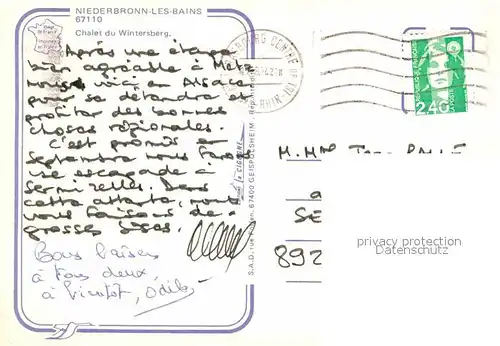 NIEDERBRONN-LES-BAINS
67110
Chalet du Wintersberg.
Après une étape
bien agréable à Metz
nous voici en Alsace
pour se détendre et
profiter des bonnes
choses régionales.
C'est promis en
septembre nous ferons
une escapade à
Sermizelles. Dans
cette attente, nous
vous faisons de
grosses bises.
Bons baisers
à tous deux,
à bientôt, Odile
S.A.D., 67400 GEISPOLSHEIM
2,40
M. Mme
SE
892
privacy protection
Datenschutz